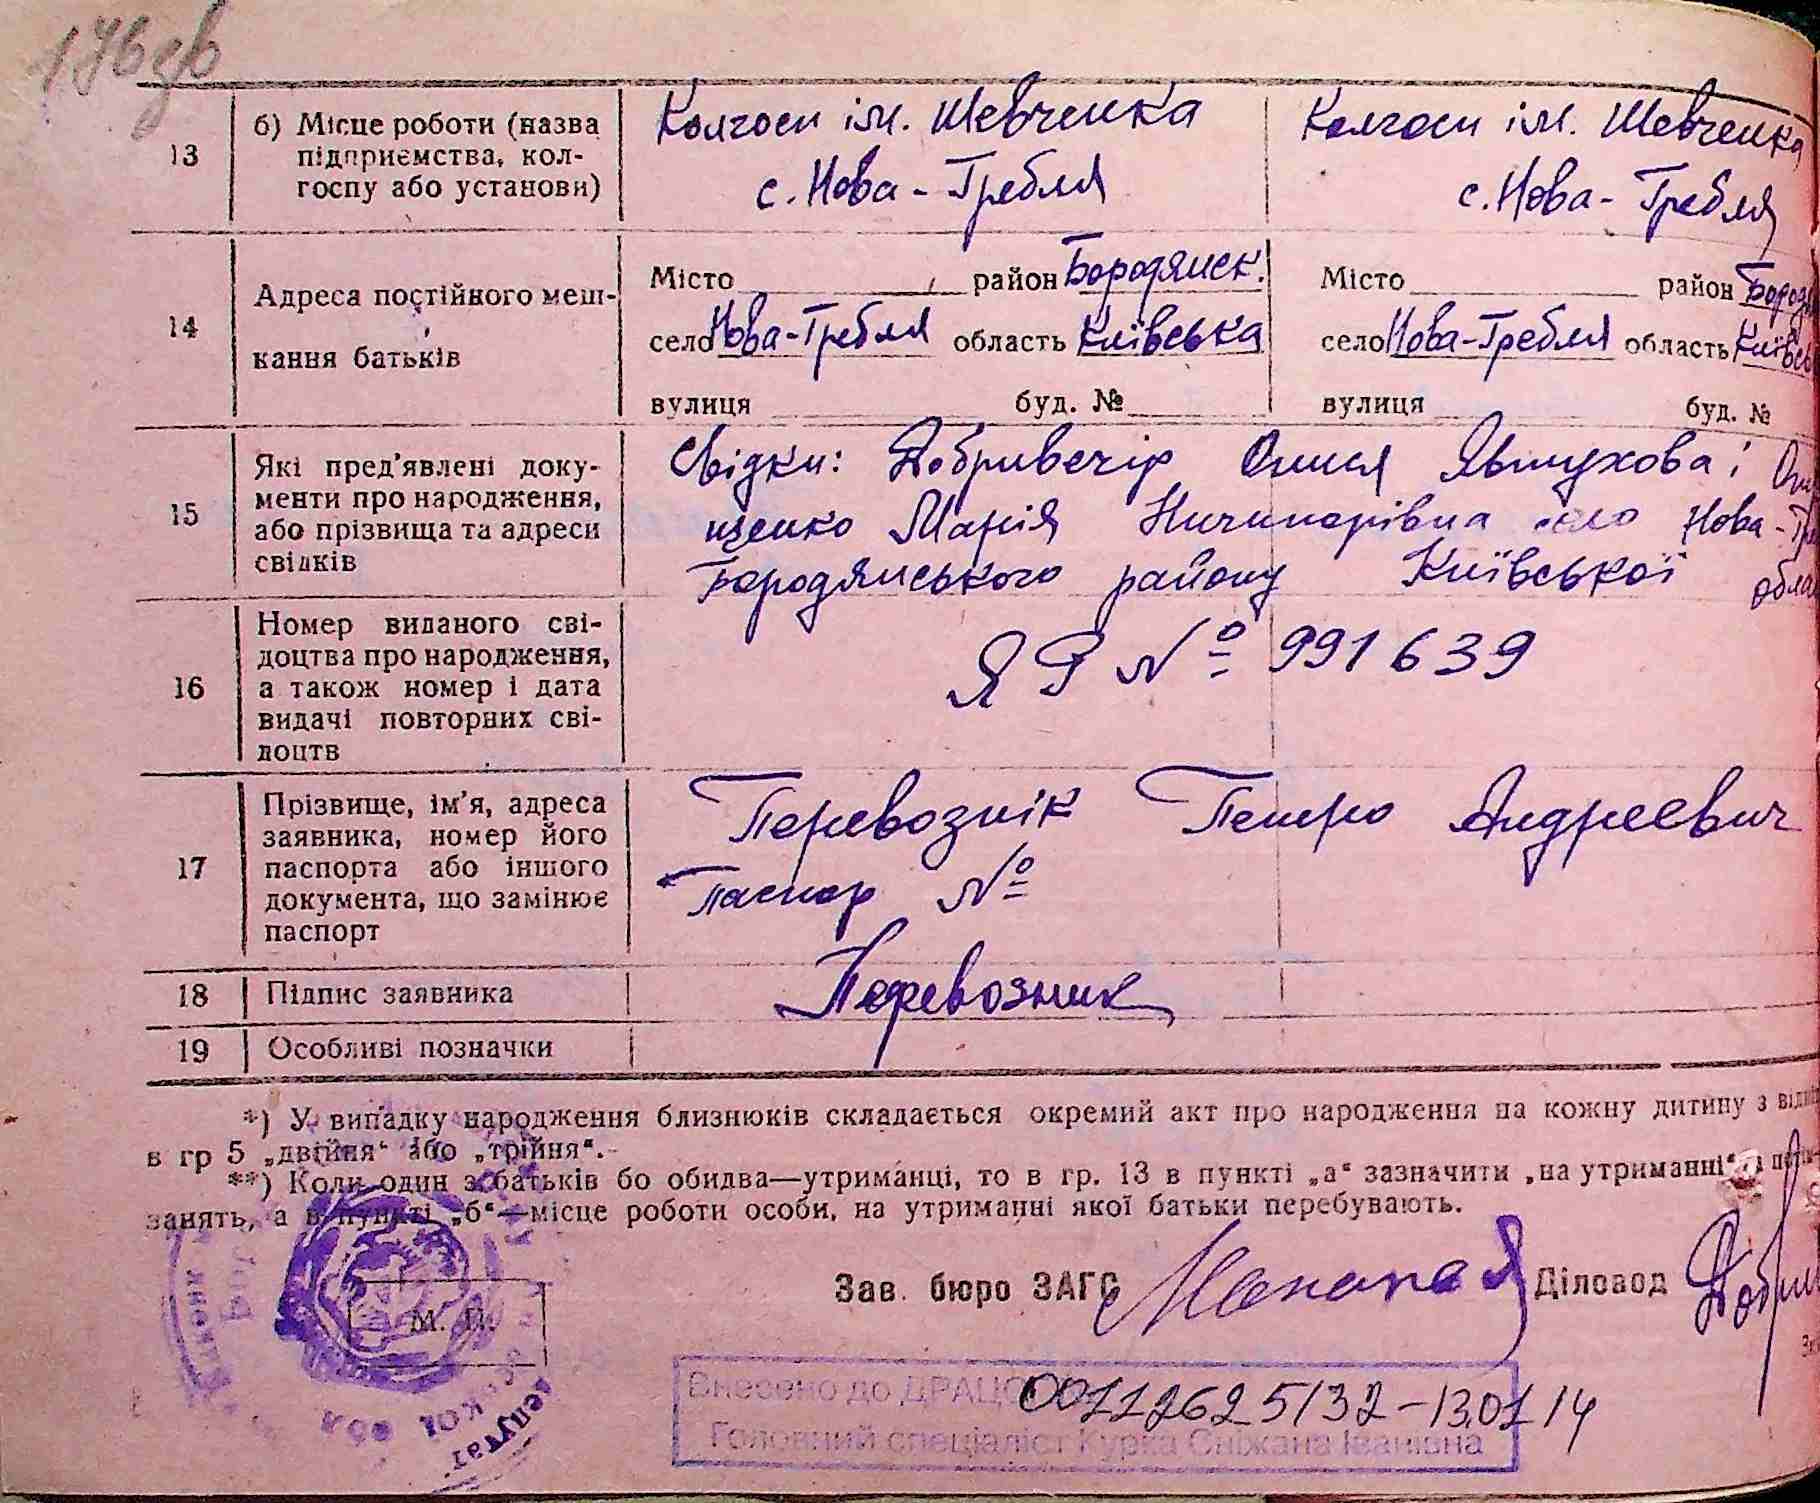 176зв
13 б) Місце роботи (назва підприємства, колгоспу або установи)
Колгосп ім. Шевченка
с. Нова-Гребля
Колгосп ім. Шевченка
с. Нова-Гребля
14 Адреса постійного мешкання батьків
Місто район Бородянськ.
село Нова-Гребля область Київська
вулиця буд. №
Місто район Бород
село Нова-Гребля область Київсь
вулиця буд. №
15 Які пред'явлені документи про народження, або прізвища та адреси свідків
Свідки: Добривечір Олися Явтухова і
щенко Марія Ничипорівна село Нова-Гре
Бородянського району Київської обла
16 Номер виданого свідоцтва про народження, а також номер і дата видачі повторних свідоцтв
ЯР № 991639
17 Прізвище, ім'я, адреса заявника, номер його паспорта або іншого документа, що замінює паспорт
Перевознік Петро Андреевич
Паспор №
18 Підпис заявника
Перевозник
19 Особливі позначки
*) У випадку народження близнюків складається окремий акт про народження на кожну дитину з відмі
в гр 5 „двійня“ або „трійня“.
**) Коли один з батьків бо обидва—утриманці, то в гр. 13 в пункті „а“ зазначити „на утриманні“
занять, а в пункті „б“—місце роботи особи, на утриманні якої батьки перебувають.
Зав. бюро ЗАГС Діловод
М. П.
Внесено до ДРАЦС 00112625132-13.01.14
Головний спеціаліст Курка Сніжана Іванівна